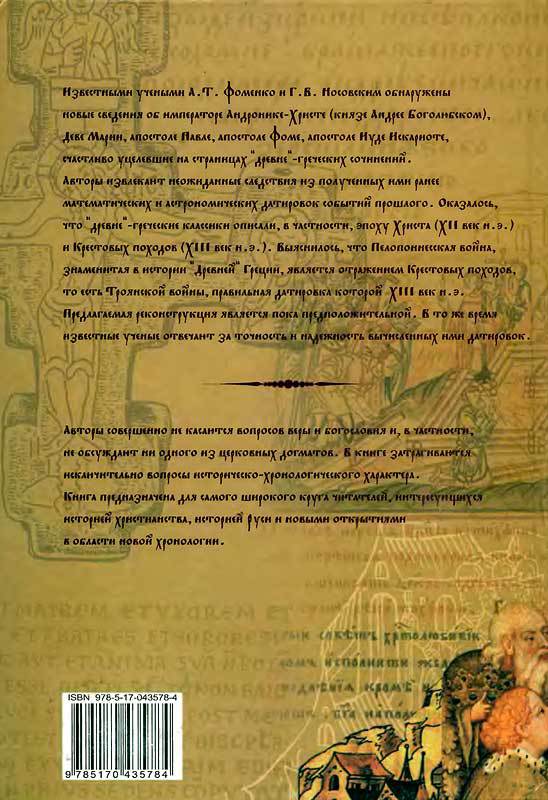 Известными учеными А.Т. Фоменко и Г.В. Носовским обнаружены
новые сведения об императоре Андронике-Христе (князе Андрее Боголюбском),
Деве Марии, апостоле Павле, апостоле Фоме, апостоле Иуде Искариоте,
счастливо уцелевшие на страницах "древне"-греческих сочинений.
Авторы извлекают неожиданные следствия из полученных ими ранее
математических и астрономических датировок событий прошлого. Оказалось,
что "древне"-греческие классики описали, в частности, эпоху Христа (XII век н.э.)
и Крестовых походов (XIII век н.э.). Выяснилось, что Пелопоннесская война,
знаменитая в истории "Древней" Греции, является отражением Крестовых походов,
то есть Троянской войны, правильная датировка которой XIII век н.э.
Предлагаемая реконструкция является пока предположительной. В то же время
известные ученые отвечают за точность и надежность вычисленных ими датировок.
Авторы совершенно не касаются вопросов веры и богословия и, в частности,
не обсуждают ни одного из церковных догматов. В книге затрагиваются
исключительно вопросы историческо-хронологического характера.
Книга предназначена для самого широкого круга читателей, интересующихся
историей христианства, историей Руси и новыми открытиями
в области новой хронологии.
MATREM ET UXOREM ET
ISBN 978-5-17-043578-4
9 785170 435784